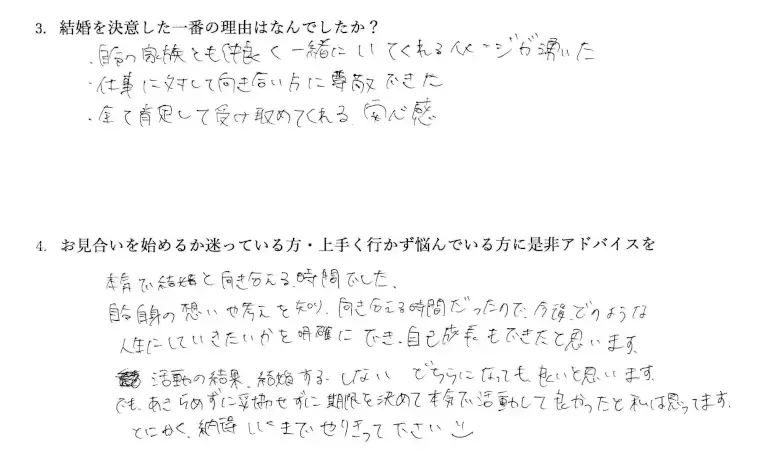 3. 結婚を決意した一番の理由はなんでしたか？
・自分の家族とも仲良く一緒にいてくれるイメージが湧いた
・仕事に対して向き合い方に尊敬できた
・全て肯定して受け取めてくれる、安心感
4. お見合いを始めるか迷っている方・上手く行かず悩んでいる方に是非アドバイスを
本気で結婚と向き合える、時間でした。
自分自身の想いや考えを知り、向き合える時間だったので、今後、どのような
人生にしていきたいかを明確にでき、自己成長もできたと思います。
活動の結果、結婚する、しない どちらになっても良いと思います。
でも、あきらめずに妥協せずに期限を決めて本気で活動して良かったと私は思ってます。
とにかく、納得いくまでやりきって下さい